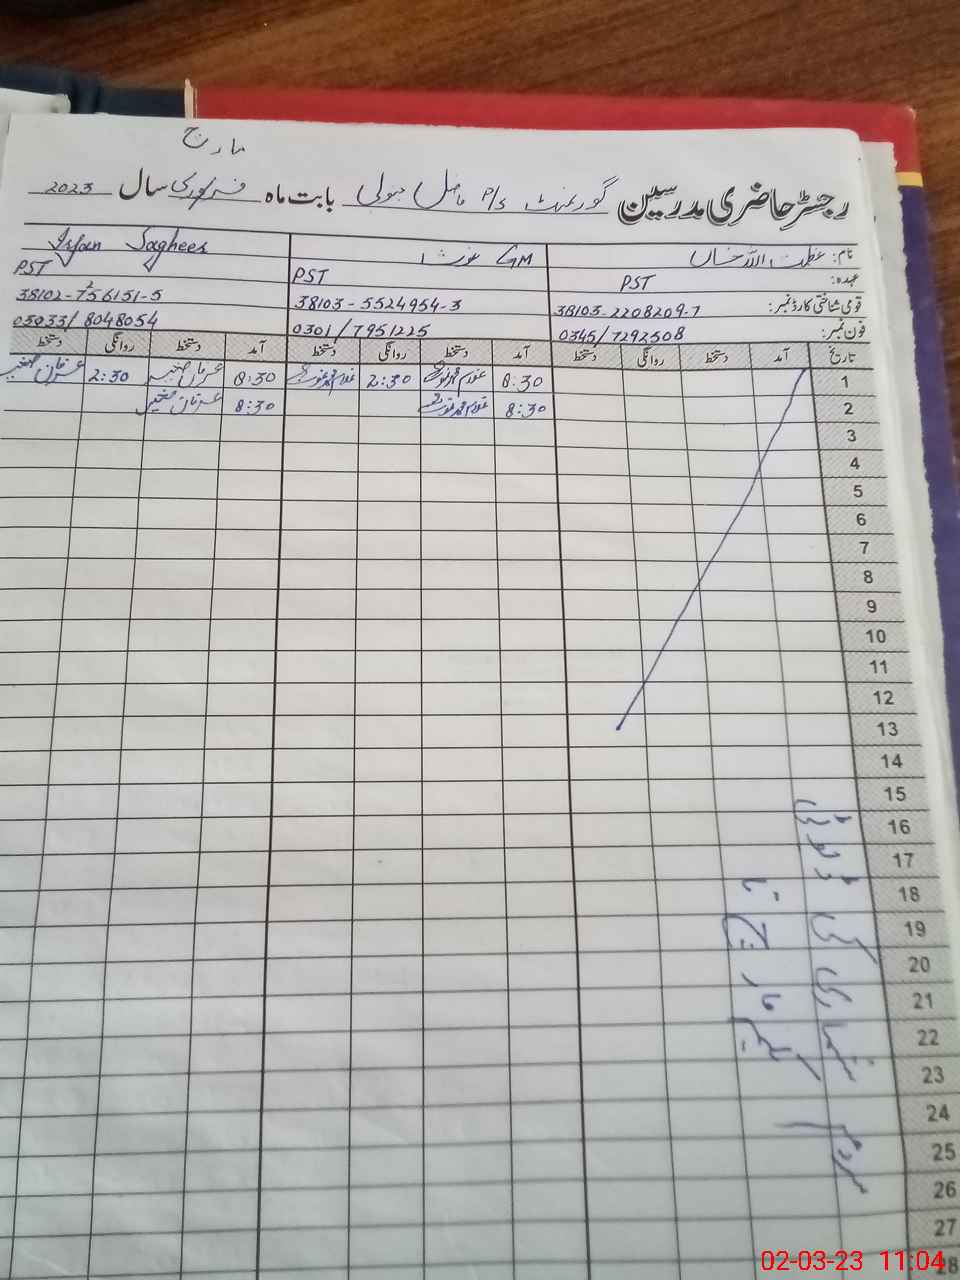 مارچ
رجسٹر حاضری مدرسین گورنمنٹ P/S ہولی بابت ماہ فروری سال 2023
نام: عظمت اللہ خاں GM غوث Irfan Sagheer
عہدہ: PST PST PST
قومی شناختی کارڈ نمبر: 38103-2208209-7 38103-5524954-3 38102-7256151-5
فون نمبر: 0345/7292508 0301/7951225 03033/8048054
تاریخ آمد دستخط روانگی دستخط آمد دستخط روانگی دستخط آمد دستخط روانگی دستخط
1 8:30 غلام محمد غوث 2:30 غلام محمد غوث 8:30 عرفان صغیر 2:30 عرفان صغیر
2 8:30 غلام محمد غوث 8:30 عرفان صغیر
3
4
5
6
7
8
9
10
11
12
13
14
15
16
17
18
19
20
21
22
23
24
25
26
27
28
مردم شماری کی ڈیوٹی
یکم مارچ تا
02-03-23 11:04